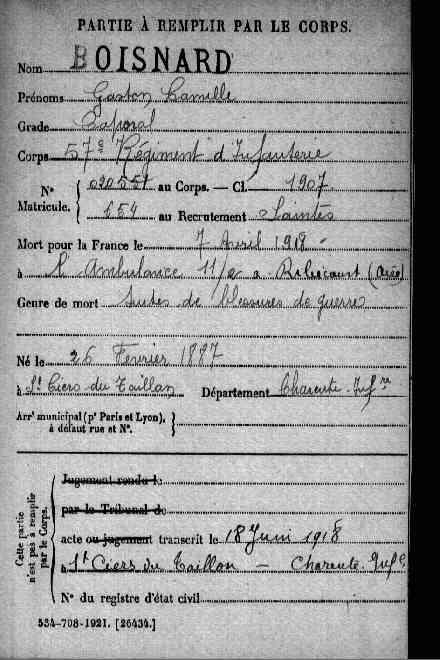 PARTIE À REMPLIR PAR LE CORPS.
Nom BOISNARD
Prénoms Gaston Camille
Grade Caporal
Corps 57e Régiment d'Infanterie
N° Matricule. { 020551 au Corps. — Cl. 1907
654 au Recrutement Saintes
Mort pour la France le 7 Avril 1918
à l'Ambulance 11/2 à Ribécourt (Oise)
Genre de mort Suites de blessures de guerre
Né le 26 Février 1887
à St Ciers du Taillon Département Charente-Infre
Arrt municipal (pr Paris et Lyon), à défaut rue et N°. }
Cette partie n'est pas à remplir par le Corps.
Jugement rendu le
par le Tribunal de
acte ou jugement transcrit le 18 Juin 1918
à St Ciers du Taillon — Charente Infre
N° du registre d'état civil
534-708-1921. [26434.]